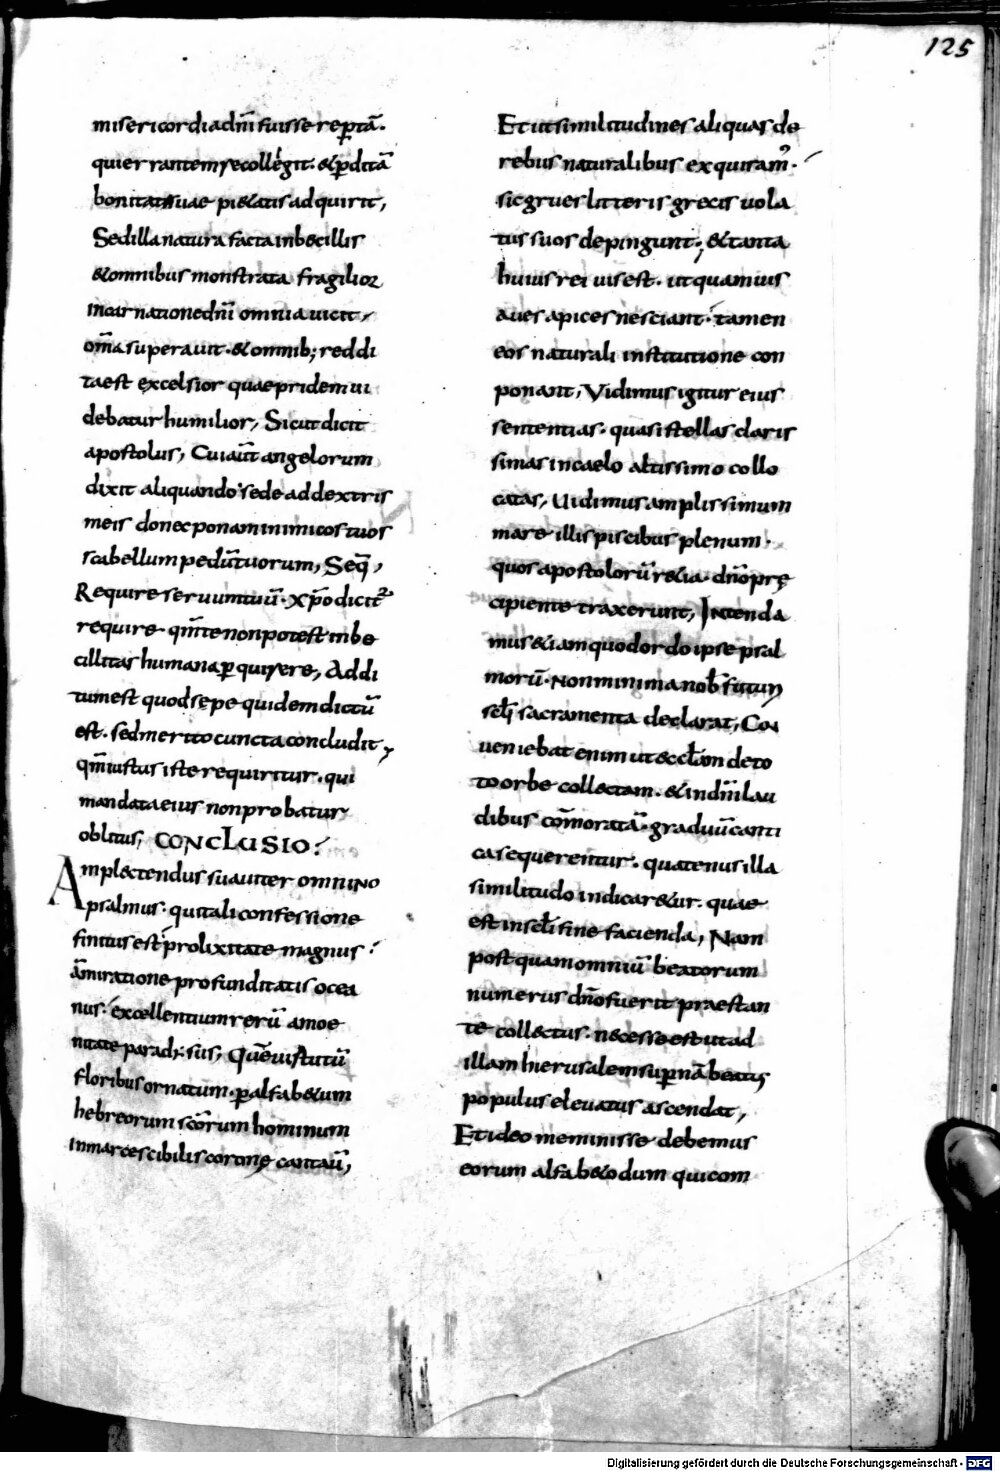 125
misericordia dñi fuisse reptā.
qui errantem se collegit. & pditā
bonitatis suae pi&atis adquirit,
Sed illa natura facta inbecillis
& omnibus monstrata fragilior
incarnatione dñi omnia uicit,
oma superauit. & omnib; reddi
ta est excelsior quae pridem ui
debatur humilior, Sicut dicit
apostolus, Cui aūt angelorum
dixit aliquando sede ad dextris
meis donec ponam inimicos tuos
scabellum pedū tuorum, Seq̄,
Require seruum tuū. xp̄o dicit
require qm̄ te non potest inbe
cillitas humana pquirere, Addi
tum est quod sępe quidem dictū
est. sed merito cuncta concludit,
qm̄ iustus iste requiritur. qui
mandata eius non probatur
oblitus, CONCLUSIO.
Amplectendus suauiter omnino
psalmus. qui tali confessione
finitus est prolixitate magnus.
āmiratione profunditatis ocea
nus. excellentium rerū amoe
nitate paradisus, Quē uistutū
floribus ornatum. p alfab&um
hebreorum scōrum hominum
inmarcescibilis coronę cantauī,
Et ut similitudines aliquas de
rebus naturalibus exquiram.
sic grues litteris grecis uola
tus suos depingunt, & tanta
huius rei uis est. ut quamuis
aues apices nesciant. tamen
eos naturali institutione con
ponant, Vidimus igitur eius
sententias. quasi stellas claris
simas in caelo altissimo collo
catas, Uidimus amplissimum
mare illis piscibus plenum.
quos apostolorū r&ia. dño prę
cipiente traxerunt, Intenda
mus &iam quod ordo ipse psal
morū. non minima nob̄ futuri
scl̄i sacramenta declarat, Con
ueniebat enim ut eccl̄am de to
to orbe collectam. & in dñi lau
dibus cōmoratā. graduū canti
ca sequerentur. quatenus illa
similitudo indicar&ur. quae
est in scl̄i fine facienda, Nam
postquam omniū beatorum
numerus dño fuerit praestan
te collectus. necesse est ut ad
illam hierusalem supnā beatus
populus eleuatus ascendat,
Et ideo meminisse debemus
eorum alfab&odum qui com
Digitalisierung gefördert durch die Deutsche Forschungsgemeinschaft - DFG